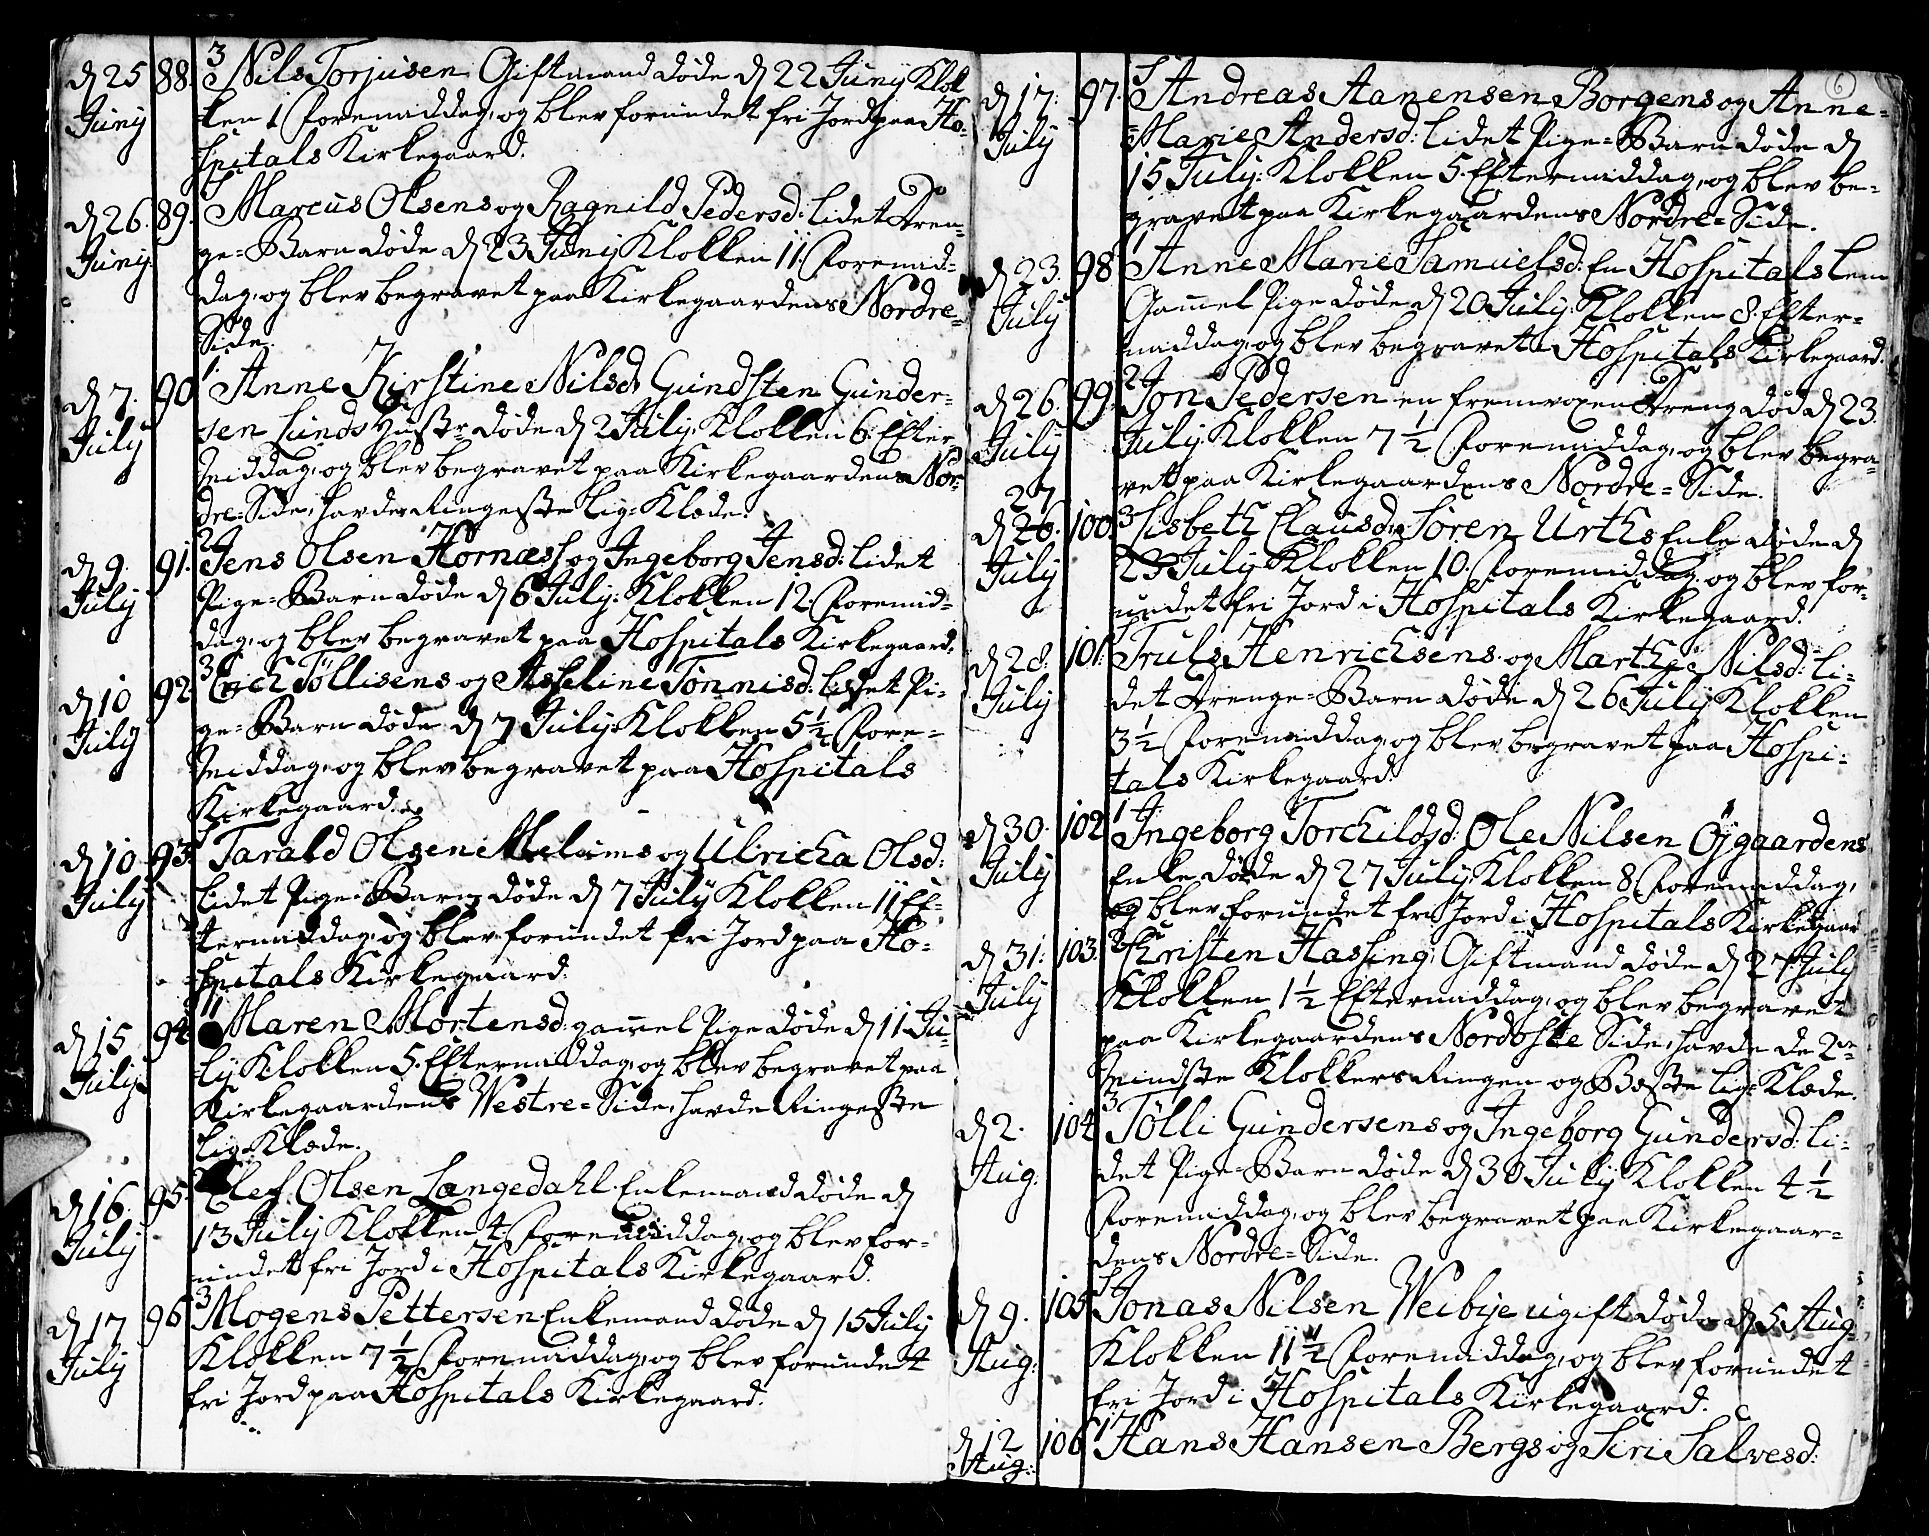 d 25 88. 3 Nils Torjusen Giftmand døde d 22 Junij Klok
Junij ken 1 Foremiddag, og blev forundet fri Jord paa Ho-
spitals Kirkegaard.
d 26. 89. Marcus Olsens og Ragnild Pedersd: lidet Dren-
Junij. ge-Barn døde d 23 Junij Klokken 11. Foremid-
dag, og blev begravet paa Kirkegaardens Nordre-
Side.
d 7. 90 1 Anne Kirstine Nilsd: Gundsten Gunder-
July sen Lunds Hustr: døde d 2 July, Klokken 6. Efter-
middag, og blev begravet paa Kirkegaardens Nor-
dre-Side, havde Ringeste Lig-Klæde.
d 9. 91. 2 Jens Olsen Hornæs og Ingeborg Jensd: lidet
July Pige-Barn døde d 6 July: Klokken 12. Foremid-
dag, og blev begravet paa Hospitals Kirkegaard.
d 10 92 3 Erich Töllisens og Asseline Tönnisd: lidet Pi-
July ge-Barn døde d 7 July: Klokken 5½ Fore-
middag, og blev begravet paa Hospitals
Kirkegaard.
d 10 93. Tarald Olsen og Ulricha Olsd:
July lidet Pige-Barn døde d 7 July Klokken 11 Ef-
termiddag, og blev forundet fri Jord paa Ho-
spitals Kirkegaard.
d 15 94 1 Maren Mortensd: gam̄el Pige døde d 11 Ju-
July. ly Klokken 5. Eftermiddag, og blev begravet paa
Kirkegaardens Westre-Side, havde Ringeste
Lig-Klæde.
d 16. 95. 2 Elef. Olsen Langedahl Enkemand døde d
July 13 July Klokken 4 Foremiddag, og blev for-
undet fri Jord i Hospitals Kirkegaard.
d 17 96 3 Mogens Pettersen Enkemand døde d 15 July
July Klokken 7½ Foremiddag, og blev forundet
fri Jord paa Hospitals Kirkegaard.
6
d 17. 97. Andreas Aanensen Borgens og Anne-
July Marie Andersd: lidet Pige-Barn døde d
15 July: Klokken 5. Eftermiddag, og blev be-
gravet paa Kirkegaardens Nordre-Side.
d 23. 98 1 Anne Marie Samuelsd: En Hospitals Lem
July Gam̄el Pige døde d 20 July, Klokken 8. Efter-
middag, og blev begravet i Hospitals Kirkegaard.
d 26. 99. 2 Jon Pedersen en fremvoxen Dreng død d 23.
July July Klokken 7½ Foremiddag, og blev begra-
vet paa Kirkegaardens Nordre-Side.
27
d 26. 100. 3 Lisbeth Clausd: Sören Urths Enke døde d
July 23 July Klokken 10. Foremiddag, og blev for-
undet fri Jord i Hospitals Kirkegaard.
d 28. 101. Truls Henrichsens og Marthe Nilsd: li-
July det Drenge-Barn døde d 26 July Klokken
3½ Foremiddag, og blev begravet paa Hospi-
tals Kirkegaard.
d 30. 102 1 Ingeborg Torchildsd: Ole Nilsen Öygaardens
July Enke døde d 27 July, Klokken 8 Foremiddag,
og blev forundet fri Jord i Hospitals Kirkegaard
d 31. 103. 2 Christen Hassing, Giftmand døde d 27 July
July Klokken 1½ Eftermiddag, og blev begravet
paa Kirkegaardens Nordoste Side, havde de 2de
mindste Klokkers Ringen og Beste Lig-Klæde.
d 2. 104 3 Tölli Gundersens og Ingeborg Gundersd: li-
Aug: det Pige-Barn døde d 30 July Klokken 4½
Foremiddag, og blev begravet paa Kirkegaar-
dens Nordre-Side.
d 9. 105 Jonas Nilsen Weibye ugift døde d 5 Aug:
Aug: Klokken 11½ Foremiddag, og blev forundet
fri Jord i Hospitals Kirkegaard.
d 12 106 1 Hans Hansen Bergs og Siri Salvesd:
Aug: